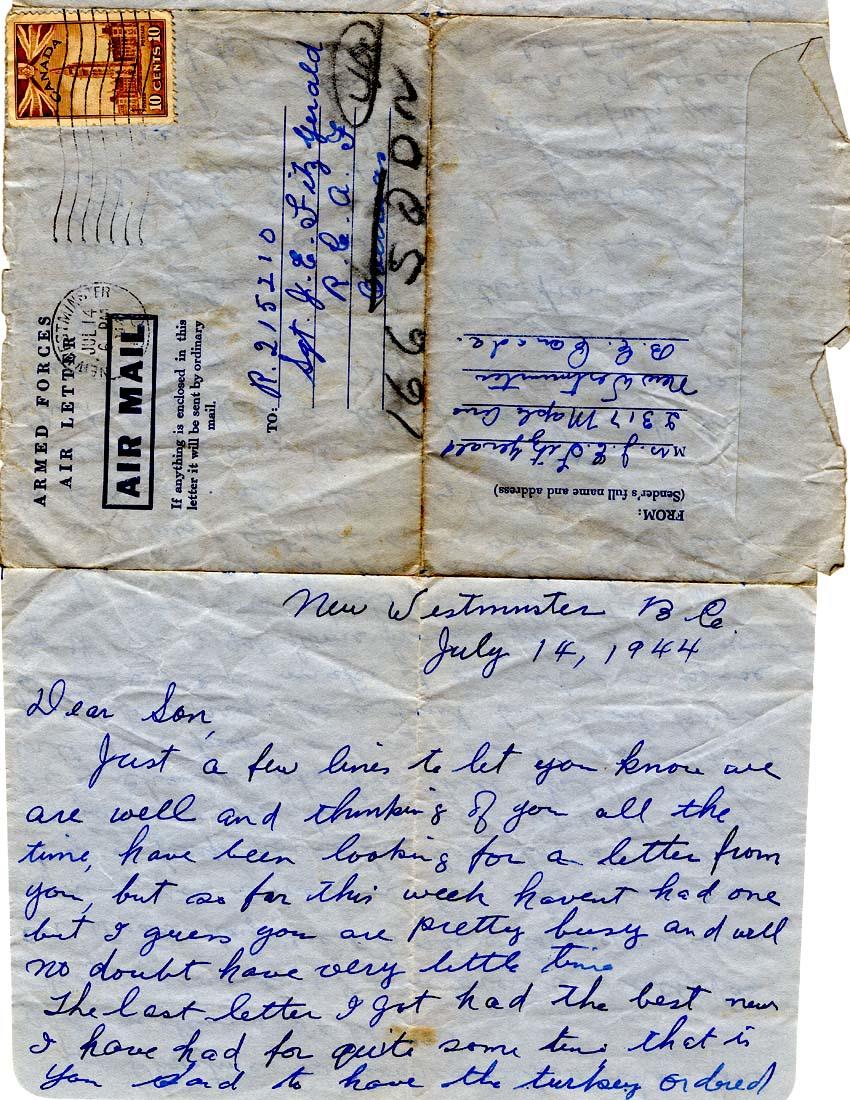 CANADA
10 CENTS 10
ARMED FORCES
AIR LETTER
AIR MAIL
JUL 14
PM
If anything is enclosed in this
letter it will be sent by ordinary
mail.
TO:
R.215210
Sgt. J. E. Fitz Gerald
R. C. A. F
Overseas
UK
196 SQDN
FROM:
(Sender's full name and address)
Mrs. J. E. Fitzgerald
2317 Maple Ave
New Westminster
B. C. Canada.
New Westminster B. C.
July 14, 1944
Dear Son,
Just a few lines to let you know we
are well and thinking of you all the
time, have been looking for a letter from
you, but so far this week havent had one
but I guess you are pretty busy and will
no doubt have very little time
The last letter I got had the best news
I have had for quite some time that is
you said to have the turkey ordered